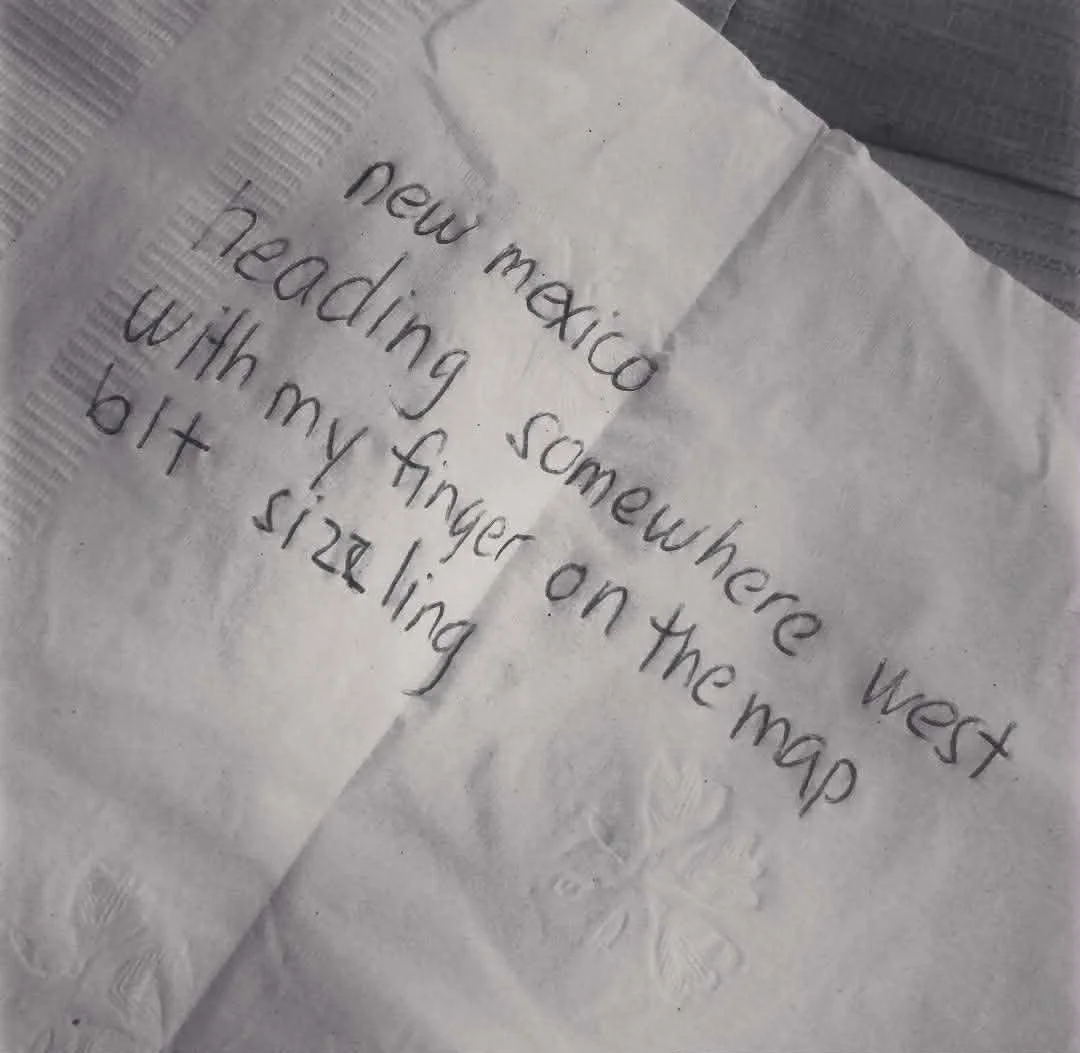 new mexico
heading somewhere west
with my finger on the map
blt sizzling